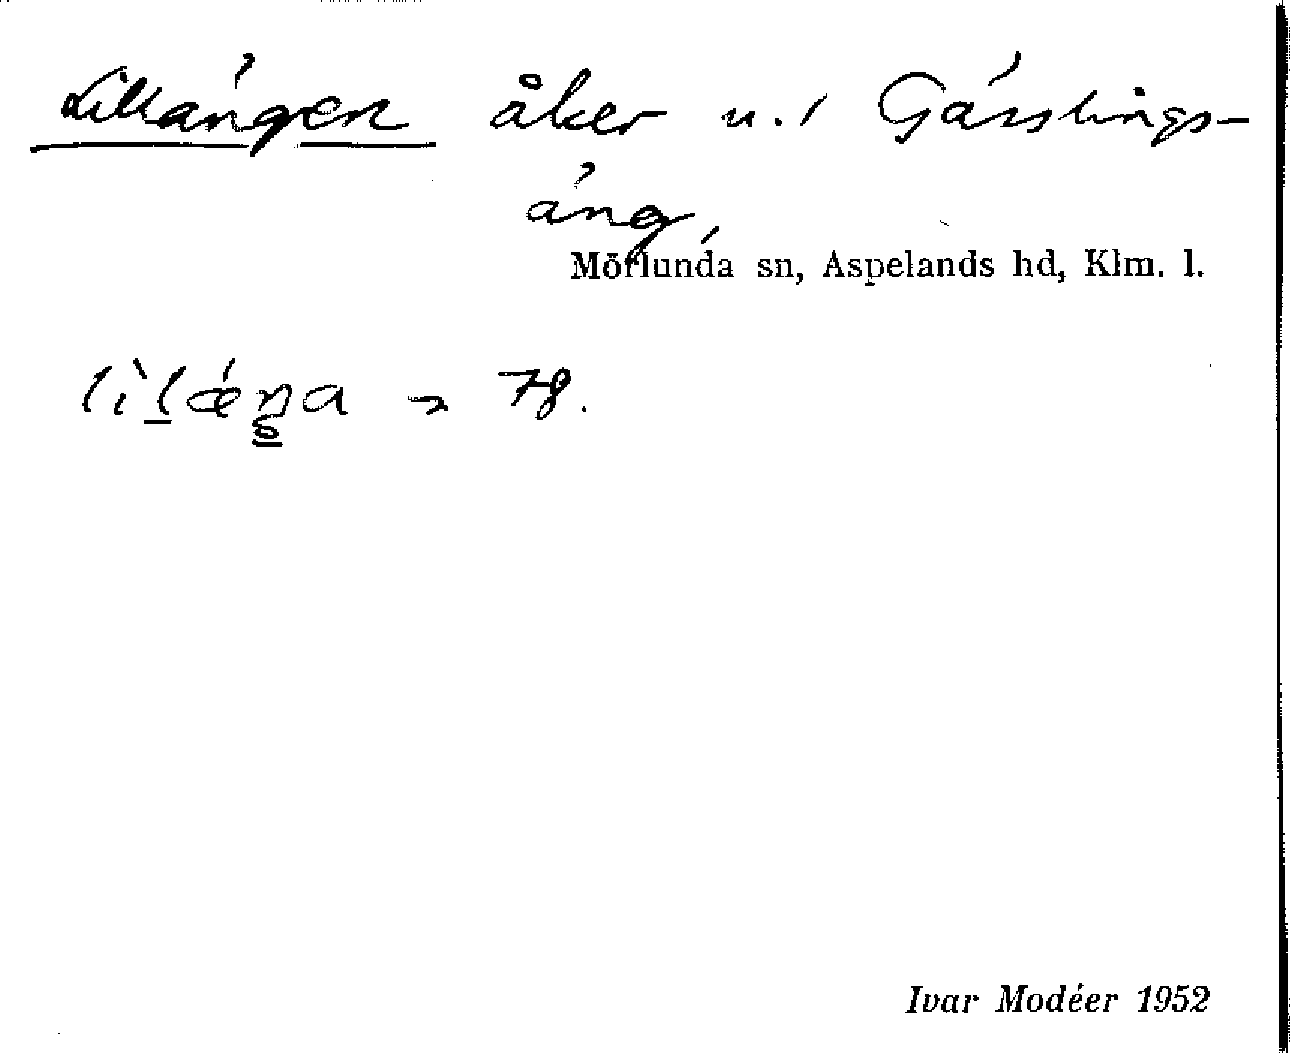 Lillängen åker u. Gässlings-
äng,
Mörlunda sn, Aspelands hd, Klm. l.
lìlǽŋa 78.
Ivar Modéer 1952